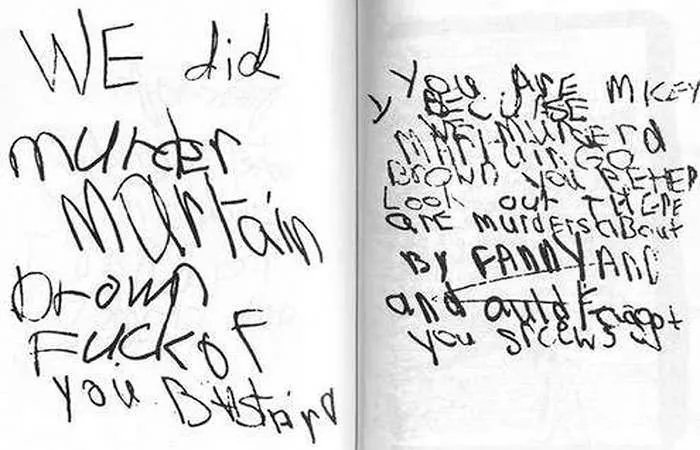 WE did
murder
martain
brown
Fuckof
you BAstArd
you ArE mICEY
y BECUrSE
WE murdErd
MArtAin GO
Brown you BEtER
Look out THErE
arE murdErs aBout
By FANNY AND
and auld Faggot
you srcEws